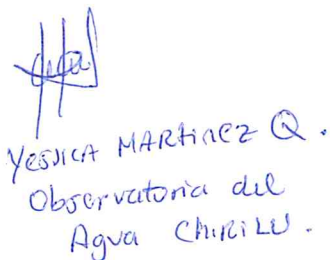 Yessica MARtinez Q.
Observatorio del
Agua ChiRiLu.